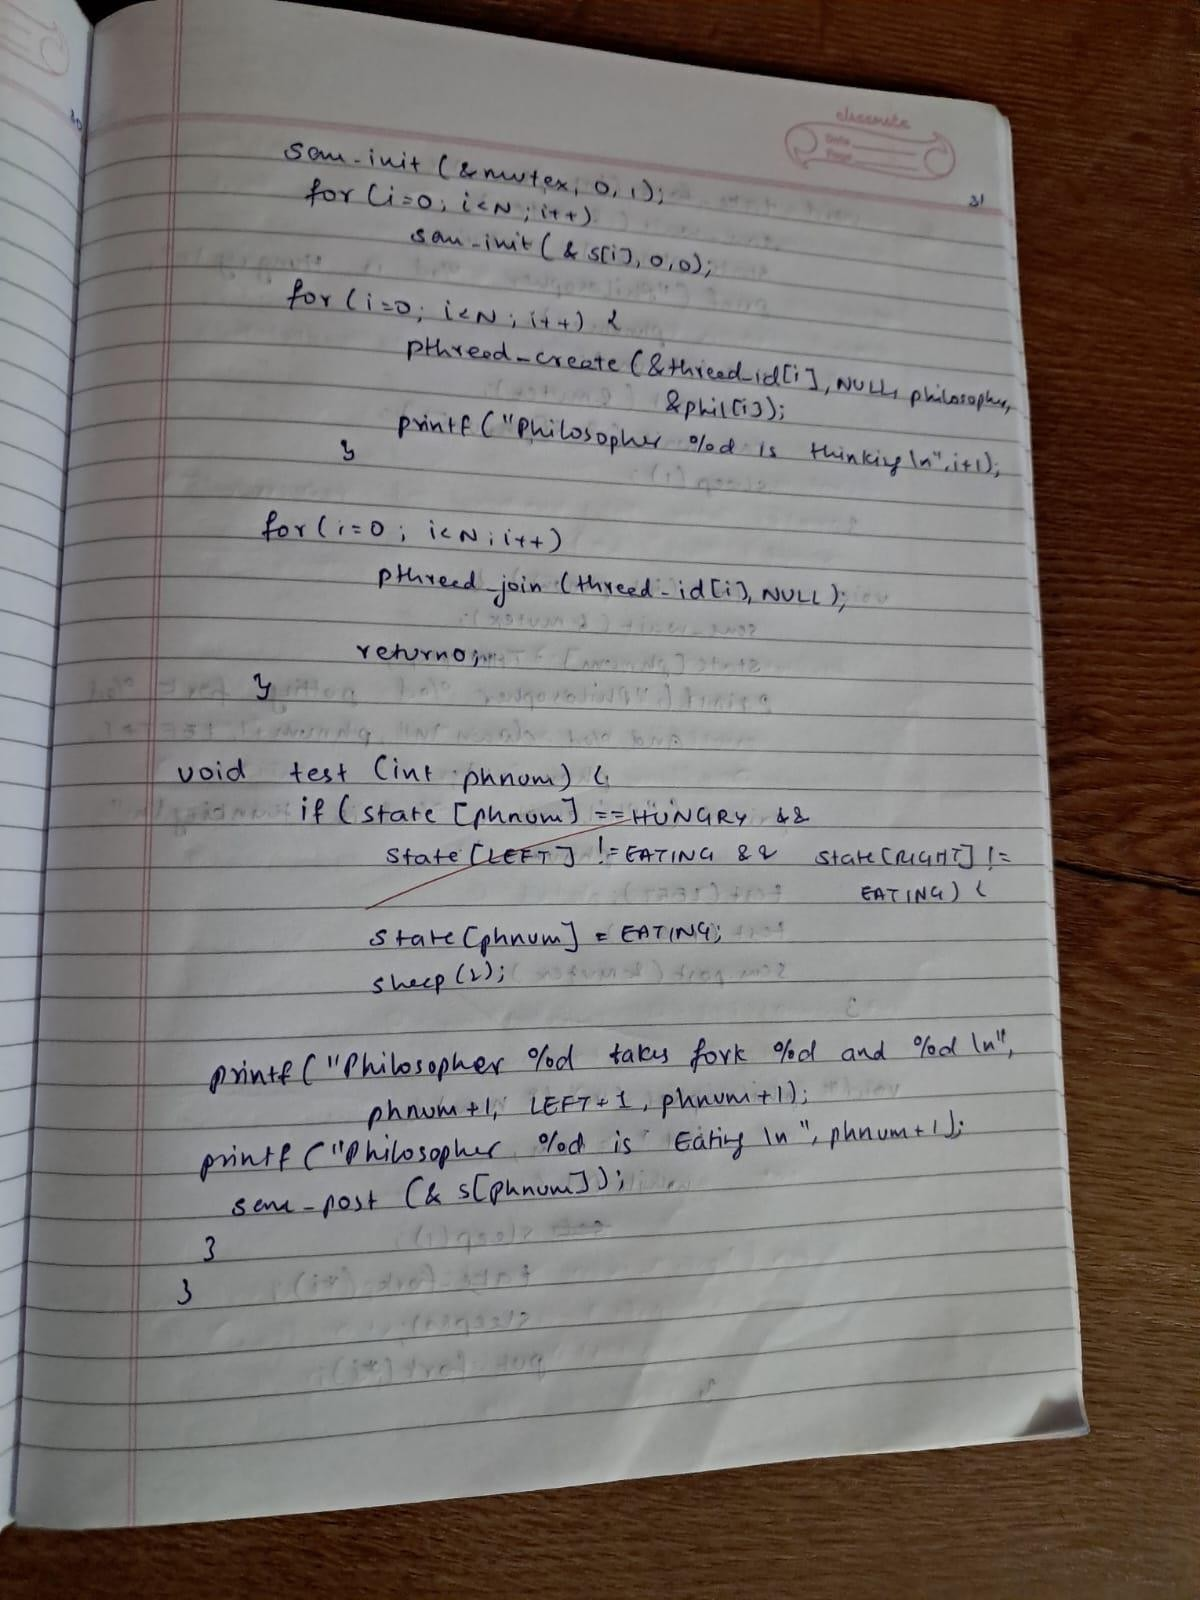 classmate
Date
Page
31
sem-init (&mutex, 0, 1);
for (i=0; i<N; i++)
sem-init (& s[i], 0, 0);
for (i=0; i<N; i++) {
pthreed-create (&threed-id[i], NULL, philosopher,
&phil[i]);
printf ("Philosopher %d is thinking \n", i+1);
}
for (i=0; i<N; i++)
pthreed-join (threed-id[i], NULL);
return 0;
}
void test (int phnum) {
if (state [phnum] == HUNGRY &&
state [LEFT] != EATING && state [RIGHT] !=
EATING) {
state [phnum] = EATING;
sleep (2);
printf ("Philosopher %d takes fork %d and %d \n",
phnum +1, LEFT + 1, phnum +1);
printf ("Philosopher %d is Eating \n", phnum +1);
sem-post (& s[phnum]);
}
}